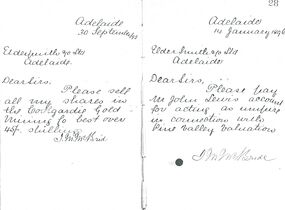 Adelaide
30 September
Elder Smith & Co Ltd
Adelaide
Dear Sirs,
Please sell
all my shares in
the Coolgardie Gold
Mining Co best over
45/. shillings
28
Adelaide
14 January 1896
Elder Smith & Co Ltd
Adelaide
Dear Sirs,
Please pay
Mr John Lewis account
for acting as umpire
in connection with
Pine Valley Valuation